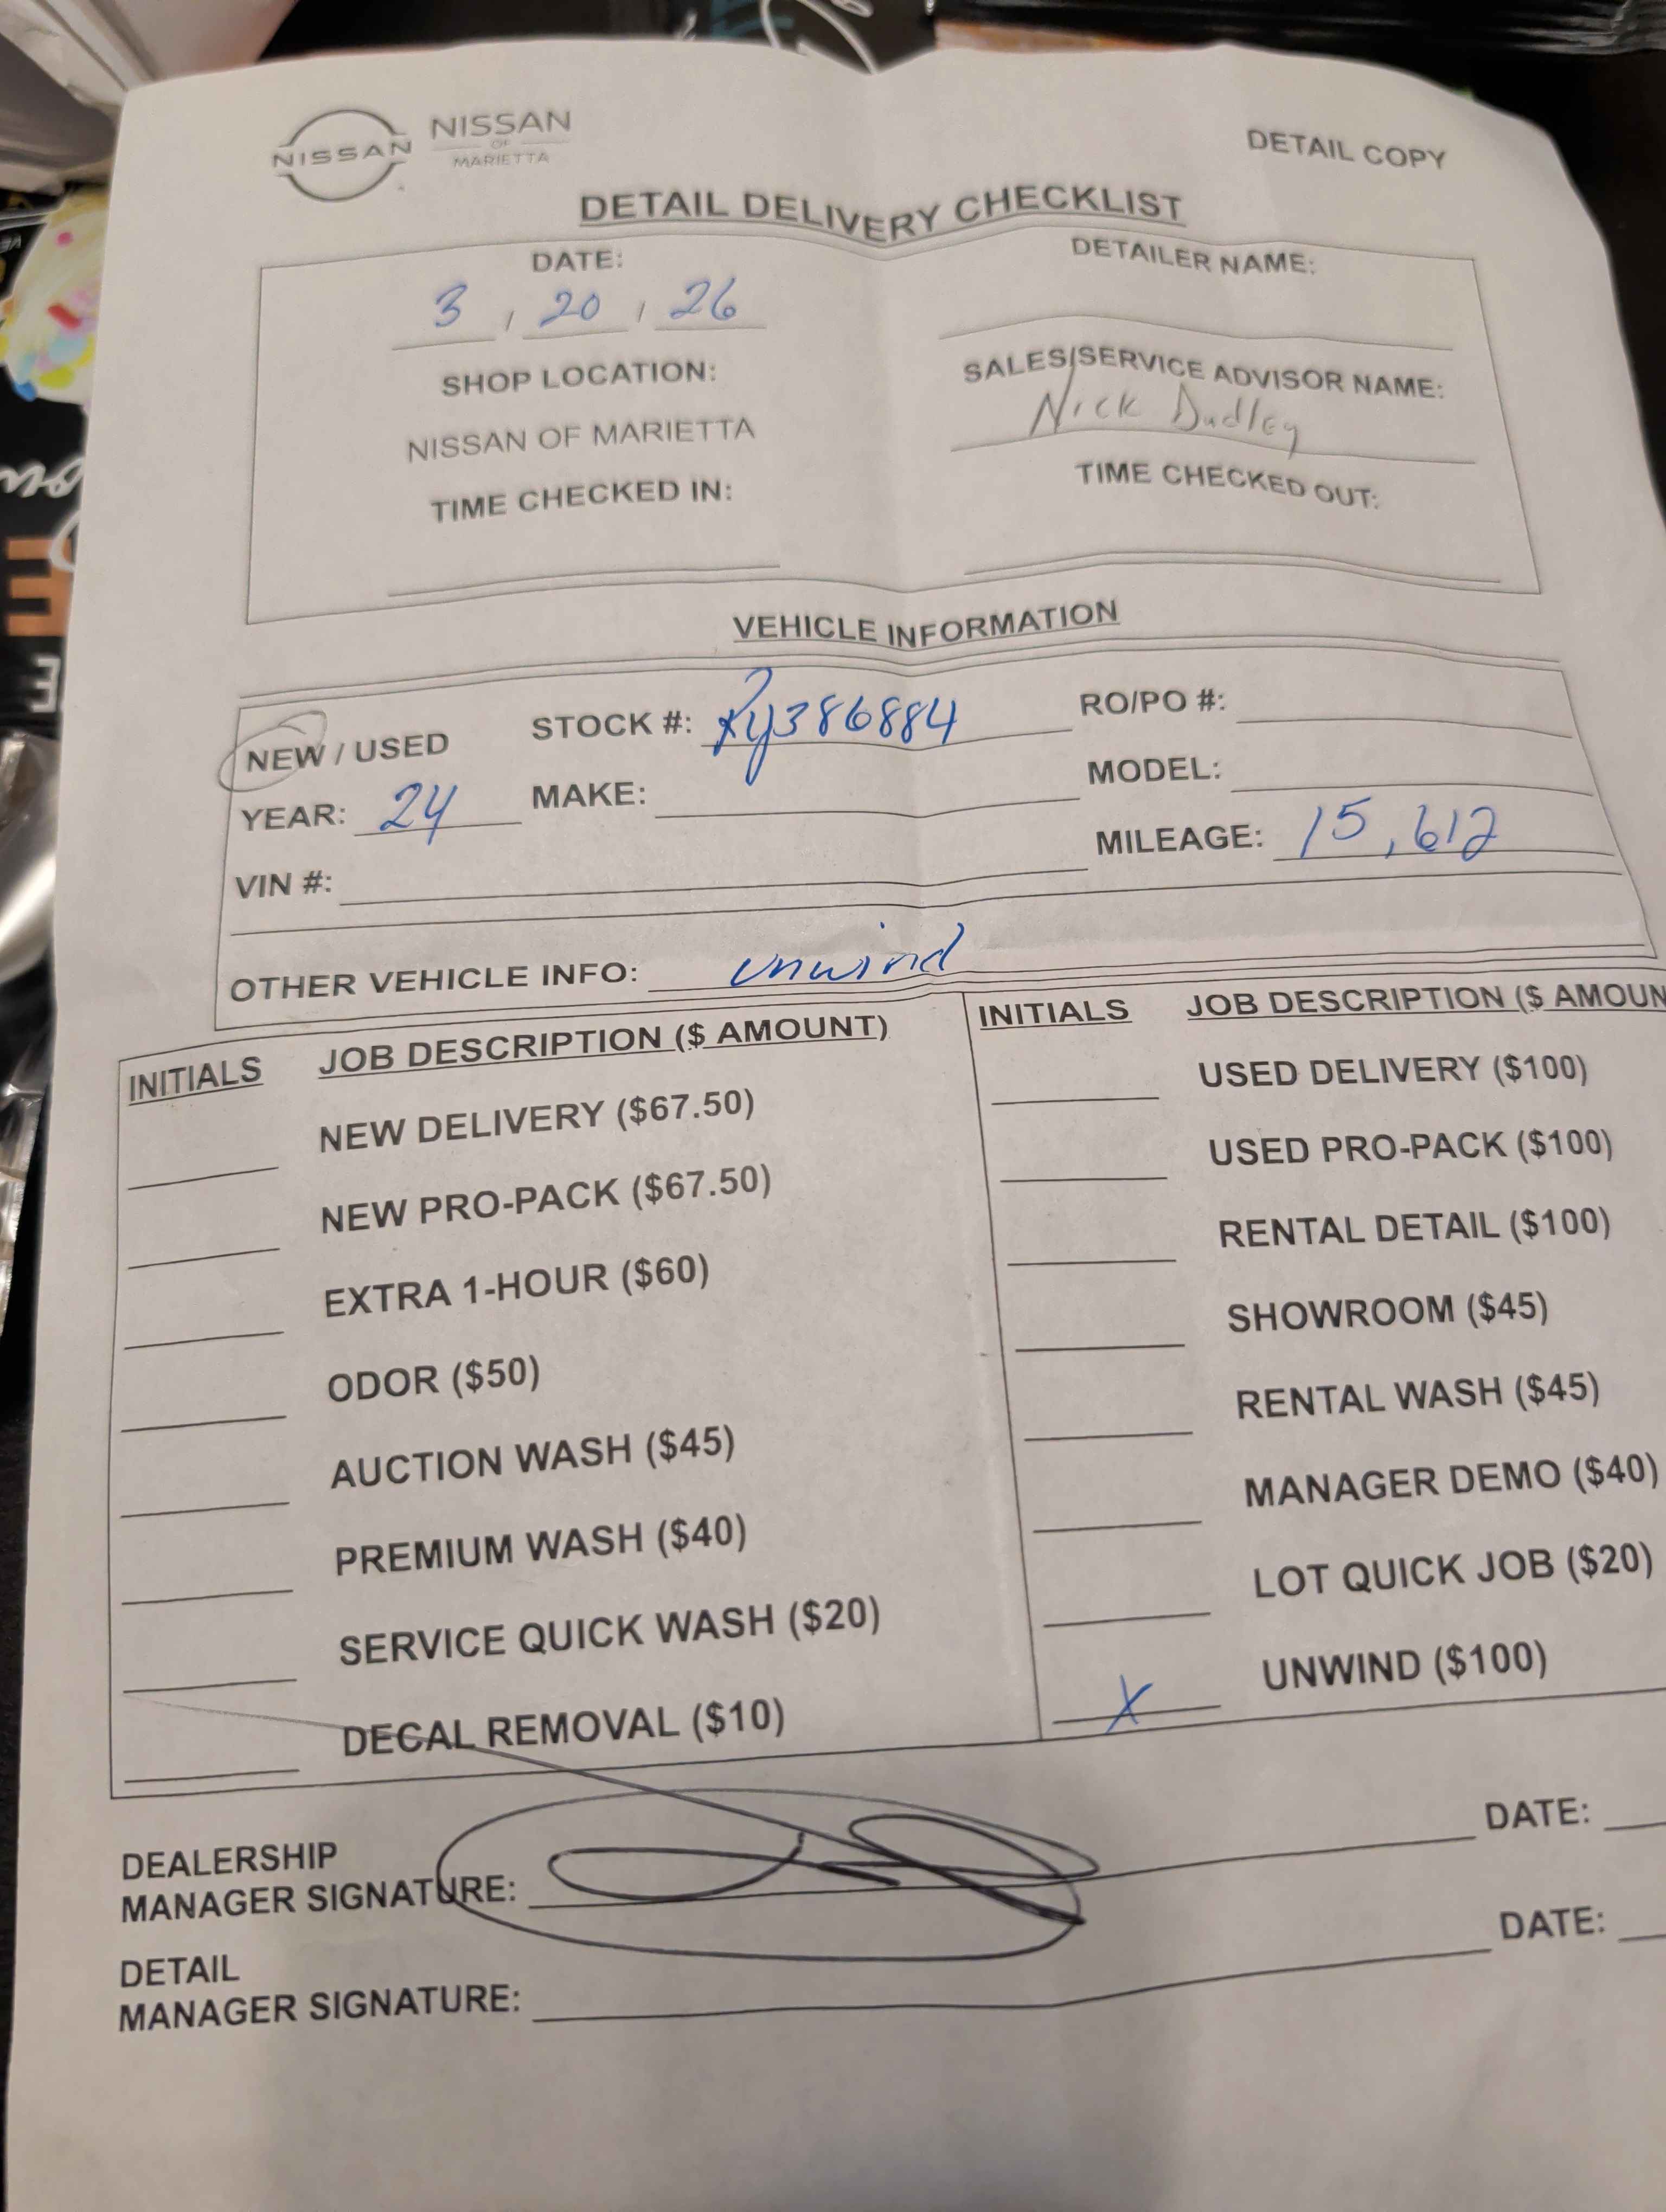 NISSAN
NISSAN
OF
MARIETTA
DETAIL COPY
DETAIL DELIVERY CHECKLIST
DATE:
3 / 20 / 26
DETAILER NAME:
SHOP LOCATION:
NISSAN OF MARIETTA
SALES/SERVICE ADVISOR NAME:
Nick Dudley
TIME CHECKED IN:
TIME CHECKED OUT:
VEHICLE INFORMATION
NEW / USED STOCK #: Ry386884 RO/PO #:
YEAR: 24 MAKE: MODEL:
VIN #: MILEAGE: 15,612
OTHER VEHICLE INFO: unwind
INITIALS JOB DESCRIPTION ($ AMOUNT)
NEW DELIVERY ($67.50)
NEW PRO-PACK ($67.50)
EXTRA 1-HOUR ($60)
ODOR ($50)
AUCTION WASH ($45)
PREMIUM WASH ($40)
SERVICE QUICK WASH ($20)
DECAL REMOVAL ($10)
INITIALS JOB DESCRIPTION ($ AMOUN
USED DELIVERY ($100)
USED PRO-PACK ($100)
RENTAL DETAIL ($100)
SHOWROOM ($45)
RENTAL WASH ($45)
MANAGER DEMO ($40)
LOT QUICK JOB ($20)
X UNWIND ($100)
DEALERSHIP
MANAGER SIGNATURE: DATE:
DETAIL
MANAGER SIGNATURE: DATE: